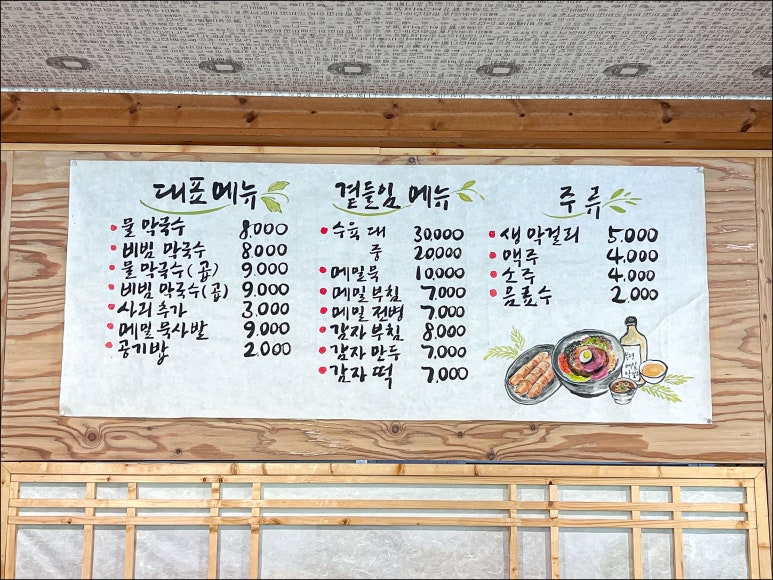 대표메뉴
물 막국수 8,000
비빔 막국수 8,000
물 막국수(곱) 9,000
비빔 막국수(곱) 9,000
사리추가 3,000
메밀 묵사발 9,000
공기밥 2,000
곁들임 메뉴
수육 대 30,000
중 20,000
메밀묵 10,000
메밀 부침 7,000
메밀 전병 7,000
감자 부침 8,000
감자 만두 7,000
감자 떡 7,000
주류
생 막걸리 5,000
맥주 4,000
소주 4,000
음료수 2,000